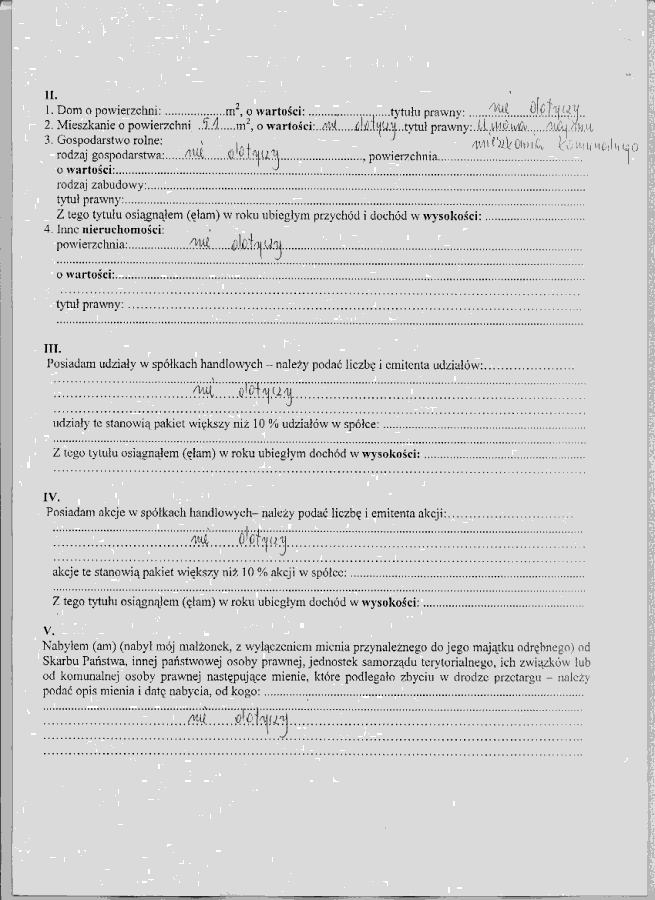 II.
1. Dom o powierzchni: ..................m², o wartości: ........................tytułu prawny: ....nie dotyczy
2. Mieszkanie o powierzchni ..51....m², o wartości: nie dotyczy..tytuł prawny: Umowa najmu
mieszkania komunalnego
3. Gospodarstwo rolne:
rodzaj gospodarstwa:.....nie dotyczy......................, powierzchnia..............................
o wartości:..............................
rodzaj zabudowy:..............................
tytuł prawny:..............................
Z tego tytułu osiągnąłem (ęłam) w roku ubiegłym przychód i dochód w wysokości: ..............................
4. Inne nieruchomości:
powierzchnia:..........nie dotyczy..............................
..............................
o wartości:..............................
..............................
tytuł prawny: ..............................
..............................
III.
Posiadam udziały w spółkach handlowych – należy podać liczbę i emitenta udziałów:......................
..............................
nie dotyczy
..............................
udziały te stanowią pakiet większy niż 10 % udziałów w spółce: ..............................
..............................
Z tego tytułu osiągnąłem (ęłam) w roku ubiegłym dochód w wysokości: ..............................
..............................
IV.
Posiadam akcje w spółkach handlowych– należy podać liczbę i emitenta akcji:..............................
..............................
nie dotyczy
..............................
akcje te stanowią pakiet większy niż 10 % akcji w spółce: ..............................
..............................
Z tego tytułu osiągnąłem (ęłam) w roku ubiegłym dochód w wysokości: ..............................
V.
Nabyłem (am) (nabył mój małżonek, z wyłączeniem mienia przynależnego do jego majątku odrębnego) od
Skarbu Państwa, innej państwowej osoby prawnej, jednostek samorządu terytorialnego, ich związków lub
od komunalnej osoby prawnej następujące mienie, które podlegało zbyciu w drodze przetargu – należy
podać opis mienia i datę nabycia, od kogo: ..............................
..............................
nie dotyczy
..............................
..............................